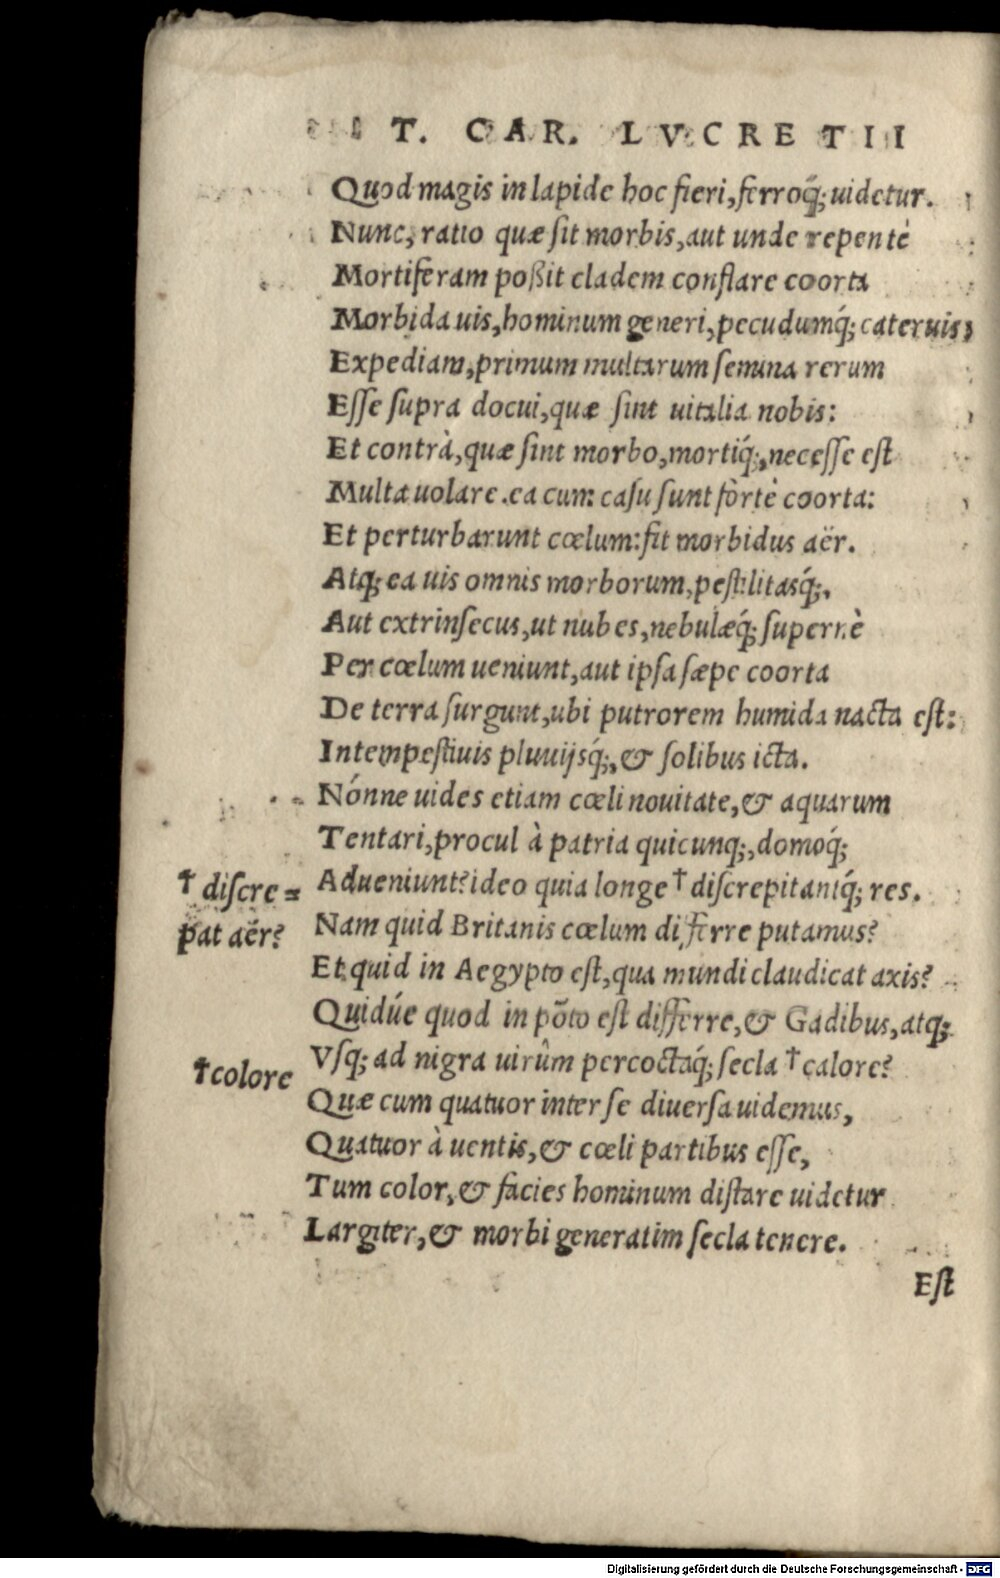 T. CAR. LVCRETII
Quod magis in lapide hoc fieri, ferroq́; uidetur.
Nunc, ratio quæ sit morbis, aut unde repentè
Mortiferam poßit cladem conflare coorta
Morbida uis, hominum generi, pecudumq́; cateruis,
Expediam, primum multarum semina rerum
Esse supra docui, quæ sint uitalia nobis:
Et contrà, quæ sint morbo, mortiq́;, necesse est
Multa uolare. ea cum casu sunt fortè coorta:
Et perturbarunt cœlum: fit morbidus aër.
Atq; ea uis omnis morborum, pestilitasq́;,
Aut extrinsecus, ut nubes, nebulæq́; supernè
Per cœlum ueniunt, aut ipsa sæpe coorta
De terra surgunt, ubi putrorem humida nacta est:
Intempestiuis pluuijsq́;, & solibus icta.
Nónne uides etiam cœli nouitate, & aquarum
Tentari, procul à patria quicunq;, domoq́;
Adueniunt? ideo quia longe † discrepitantq́; res.
† discre=
pat aër?
Nam quid Britanis cœlum differre putamus?
Et quid in Aegypto est, qua mundi claudicat axis?
Quidúe quod in põto est differre, & Gadibus, atq;
Vsq; ad nigra uirûm percoctaq́; secla † calore?
† colore
Quæ cum quatuor inter se diuersa uidemus,
Quatuor à uentis, & cœli partibus esse,
Tum color, & facies hominum distare uidetur
Largiter, & morbi generatim secla tenere.
Est
Digitalisierung gefördert durch die Deutsche Forschungsgemeinschaft - DFG